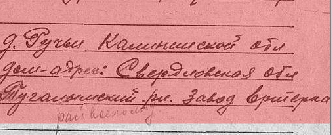 д. Ручьи Калининской обл
дом-адрес: Свердловская обл
Тугалымский рн. завод